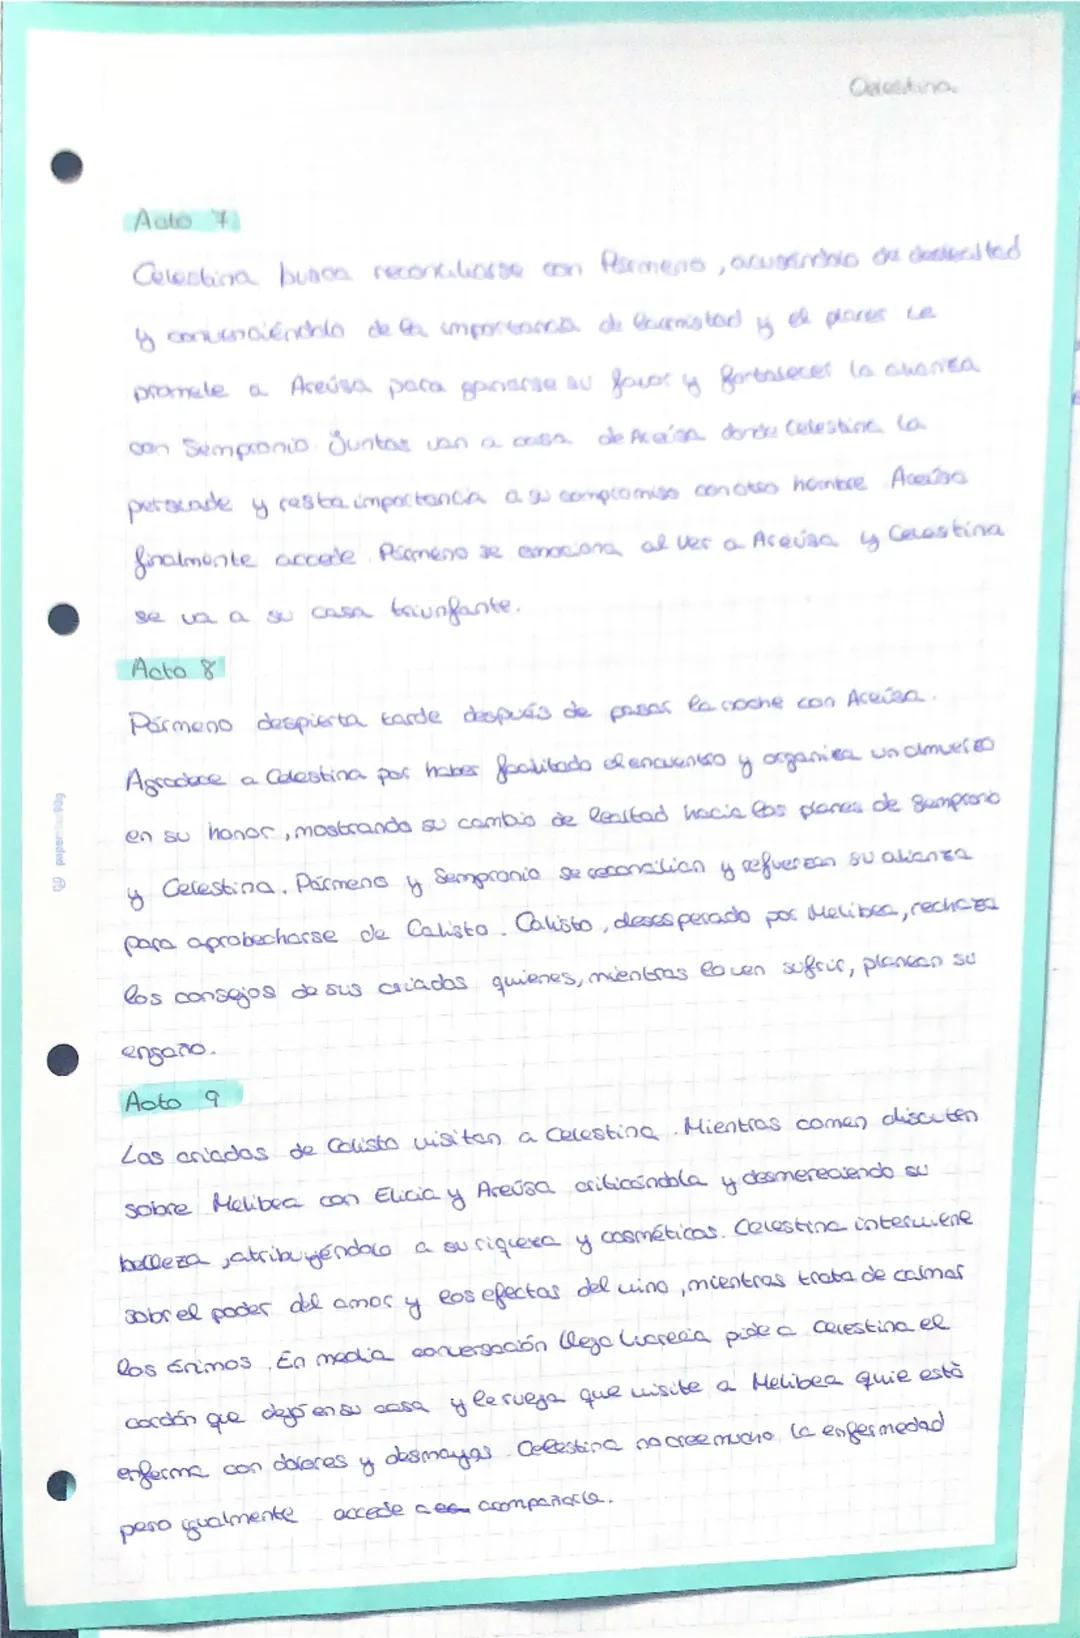 Celestina.
Acto 7
Celestina busca reconciliarse con Pármeno, acusándolo de deslealtad
y convenciéndolo de la importancia de la amistad y el placer Le
promete a Areúsa para ganarse su favor y fortalecer la alianza
con Sempronio. Juntos van a casa de Areúsa donde Celestina la
persuade y resta importancia a su compromiso con otro hombre Areúsa
finalmente accede. Pármeno se emociona al ver a Areúsa y Celestina
se va a su casa triunfante.
Acto 8
Pármeno despierta tarde después de pasar la noche con Areúsa.
Agradece a Celestina por haber facilitado el encuentro y organiza un almuerzo
en su honor, mostrando su cambio de lealtad hacia los planes de Sempronio
y Celestina. Pármeno y Sempronio se reconcilian y refuerzan su alianza
para aprobecharse de Calisto. Calisto, desesperado por Melibea, rechaza
los consejos de sus criados quienes, mientras lo ven sufrir, planean su
engaño.
Acto 9
Los criados de Calisto visitan a Celestina. Mientras comen discuten
sobre Melibea con Elicia y Areúsa criticándola y desmereciendo su
belleza, atribuyéndolo a su riqueza y cosméticos. Celestina interviene
sobre el poder del amor y los efectos del vino, mientras trata de calmar
los ánimos. En media conversación llega Lucrecia pide a Celestina el
cordón que dejó en su casa y le ruega que visite a Melibea quie está
enferma con dolores y desmayos. Celestina no cree mucho la enfermedad
pero igualmente accede a acompañarla.
papernau 90g